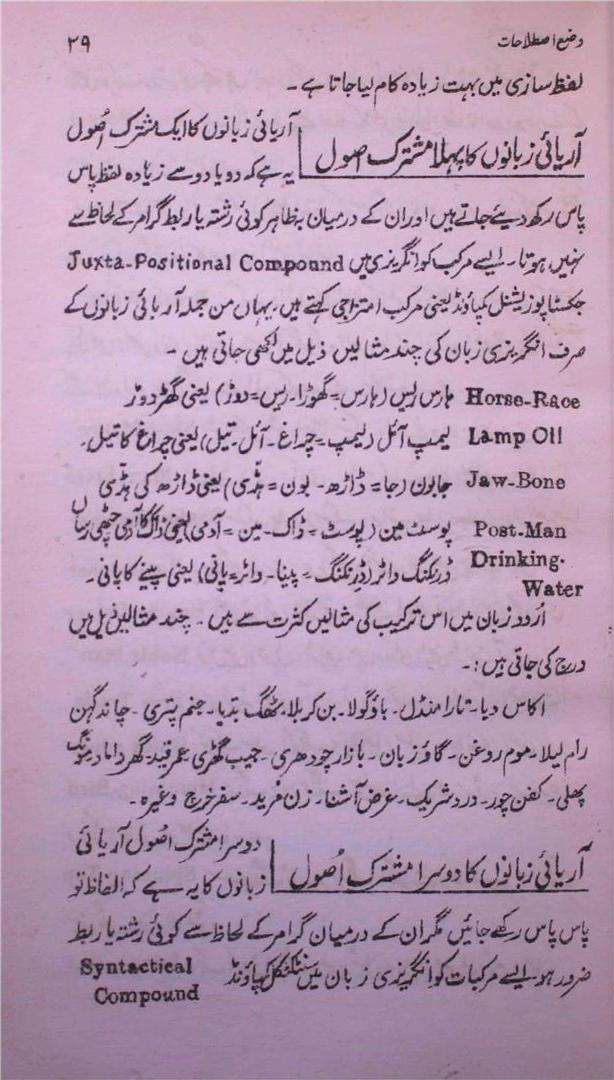 وضع اصطلاحات ۳۹
لفظ سازی میں بہت زیادہ کام لیا جاتا ہے ۔
آریائی زبانوں کا پہلا مشترک اصول
آریائی زبانوں کا ایک مشترک اُصول
یہ ہے کہ دو یا دو سے زیادہ لفظ پاس
پاس رکھ دیئے جاتے ہیں اور ان کے درمیان بظاہر کوئی رشتہ یا ربط گرامر کے لحاظ سے
نہیں ہوتا ۔ ایسے مرکب کو انگریزی میں Juxta-Positional Compound
جکسٹا پوزیشنل کمپاؤنڈ یعنی مرکب امتزاجی کہتے ہیں یہاں من جملہ آریائی زبانوں کے
صرف انگریزی زبان کی چند مثالیں ذیل میں لکھی جاتی ہیں ۔
Horse-Race ہارس ریس (ہارس = گھوڑا ۔ ریس = دوڑ) یعنی گھڑ دوڑ
Lamp Oil لیمپ آئل (لیمپ = چراغ ۔ آئل = تیل) یعنی چراغ کا تیل ۔
Jaw-Bone جابون (جا = ڈاڑھ ۔ بون = ہڈی) یعنی ڈاڑھ کی ہڈی
Post-Man پوسٹ مین (پوسٹ = ڈاک ۔ مین = آدمی) یعنی ڈاک کا آدمی چٹھی رساں
Drinking-Water ڈرنکنگ واٹر (ڈرنکنگ = پینا ۔ واٹر = پانی) یعنی پینے کا پانی ۔
اُردو زبان میں اس ترکیب کی مثالیں کثرت سے ہیں ۔ چند مثالیں ذیل میں
درج کی جاتی ہیں :۔
اکاس دیا ۔ تارا منڈل ۔ باؤ گولا ۔ بن کریلا ۔ ٹھگ بدیا ۔ جنم پتری ۔ چاند گہن
رام لیلا ۔ موم روغن ۔ گاؤ زبان ۔ بازار چودھری ۔ جیب گھڑی عمر قید ۔ گھر داماد ۔ مونگ
پھلی ۔ کفن چور ۔ درد شریک ۔ غرض آشنا ۔ زن مرید ۔ سفر خرچ وغیرہ ۔
آریائی زبانوں کا دوسرا مشترک اُصول
دوسرا مشترک اصول آریائی
زبانوں کا یہ ہے کہ الفاظ تو
پاس پاس رکھے جائیں مگر ان کے درمیان گرامر کے لحاظ سے کوئی رشتہ یا ربط
ضرور ہو ۔ ایسے مرکبات کو انگریزی زبان میں سنٹکٹکل کمپاؤنڈ Syntactical
Compound